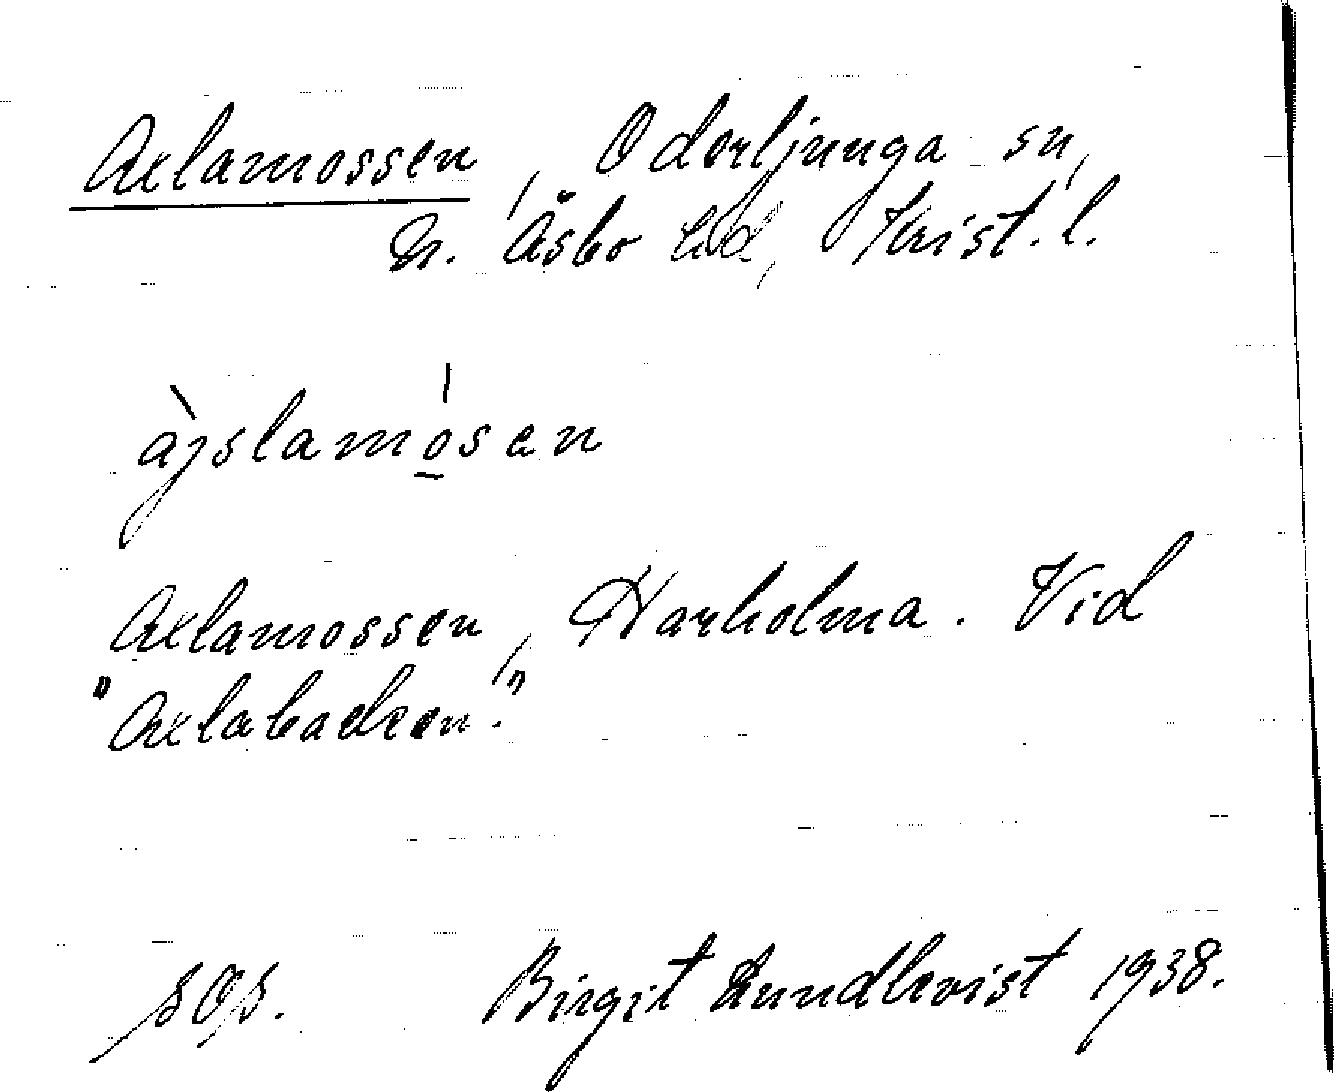 Axlamossen, Oderljunga sn,
N. Åsbo hd, Krist. l.
àjslamósen
Axlamossen, Harholma. Vid
"Axlabacken."
sOs. Birgit Lundkvist 1938.